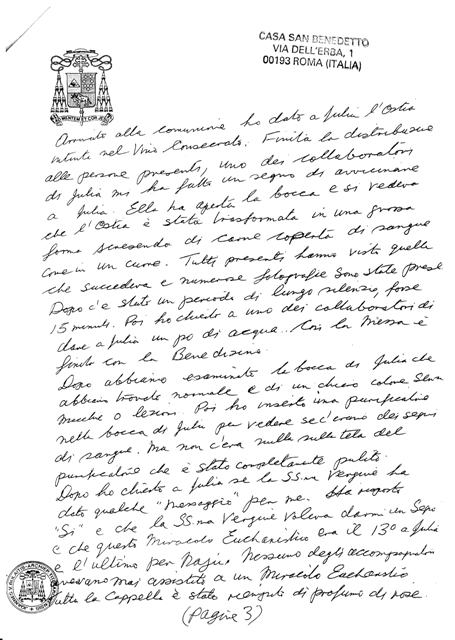 CASA SAN BENEDETTO
VIA DELL'ERBA, 1
00193 ROMA (ITALIA)
Arrivato alla comunione ho dato a Julia l'Ostia
intinta nel Vino Consacrato. Finita la distribuzione
alle persone presenti, uno dei collaboratori
di Julia mi ha fatto un segno di avvicinare
a Julia. Ella ha aperta la bocca e si vedeva
che l'Ostia è stata trasformata in una grossa
forma di carne coperta di sangue
come in un cuore. Tutti presenti hanno visto quello
che succedeva e numerose fotografie sono state prese
Dopo c'è stato un periodo di lungo silenzio, forse
15 minuti. Poi ho chiesto a uno dei collaboratori di
dare a Julia un po di acqua. Così la Messa è
finita con la Benedizione.
Dopo abbiamo esaminato la bocca di Julia che
abbiamo trovato normale e di un chiaro colore senza
macche o lesioni. Poi ho inserto una purificatoio
nella bocca di Julia per vedere se c'erano dei segni
di sangue. Ma non c'era nulla sulla tela del
purificatoio che è stato completamente pulito.
Dopo ho chiesto a Julia se la SS.ma Vergine ha
dato qualche "messaggio" per me. Ha risposto
"Si" e che la SS.ma Vergine voleva darmi un Segno
e che questo Miracolo Eucharistico era il 13° a Julia
e l'ultimo per Naju. Nessuno degli accompagnatori
avevano mai assistito a un Miracolo Eucharistico
Tutta la Cappella è stata riempita di profumo di rose.
(Pagine 3)